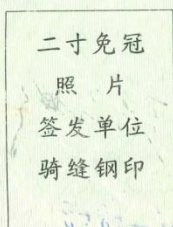 二寸免冠
照 片
签发单位
骑缝钢印